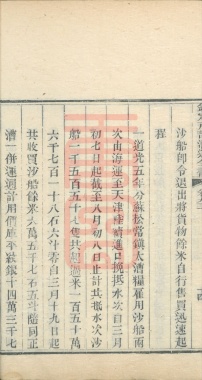 沙船即令退出將貨物餘米自行售賣迅速起
程
一道光五年分蘇松常鎮太漕糧雇用沙船兩
次由海運至天津陸續進口挽抵水次自三月
初七日起截至八月初八日止計共抵水次沙
船一千五百五十七隻共起過米一百五十萬
六千七百一十八石六斗零自三月十九日起
共收買沙船餘米九萬五千七石五斗隨同正
漕一併運通計用價庫平紋銀十四萬三千七